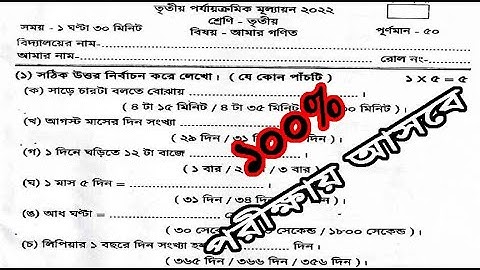 তৃতীয় পর্যায়ক্রমিক মূল্যায়ন ২০২২
শ্রেণি - তৃতীয়
সময় - ১ ঘণ্টা ৩০ মিনিট
বিষয় - আমার গণিত
পূর্ণমান - ৫০
বিদ্যালয়ের নাম-
আমার নাম-
রোল নং-
(১) সঠিক উত্তর নির্বাচন করে লেখো। ( যে কোন পাঁচটি )
১ X ৫ = ৫
(ক) সাড়ে চারটা বলতে বোঝায়
( ৪ টা ১৫ মিনিট / ৪ টা ৩৫ মিনিট / মিনিট )
(খ) আগস্ট মাসের দিন সংখ্যা
( ২৯ দিন / ৩১
(গ) ১ দিনে ঘড়িতে ১২ টা বাজে
( ১ বার / ২ / ৩ বার )
(ঘ) ১ মাস ৫ দিন =
( ৩১ দিন / ৩৪ দিন
(ঙ) আধ ঘণ্টা =
( ৩০ সেকেন্ড / সেকেন্ড / ১৮০০ সেকেন্ড )
(চ) লিপিয়ার ১ বছরে দিন সংখ্যা দিন।
( ৩৬৫ দিন / ৩৬৬ দিন / ৩৫৬ দিন )
১০০%
পরীক্ষায় আসবে